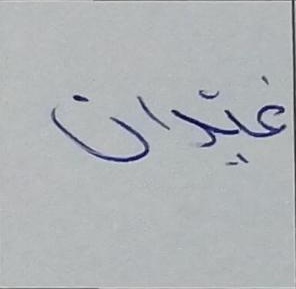 غيذان